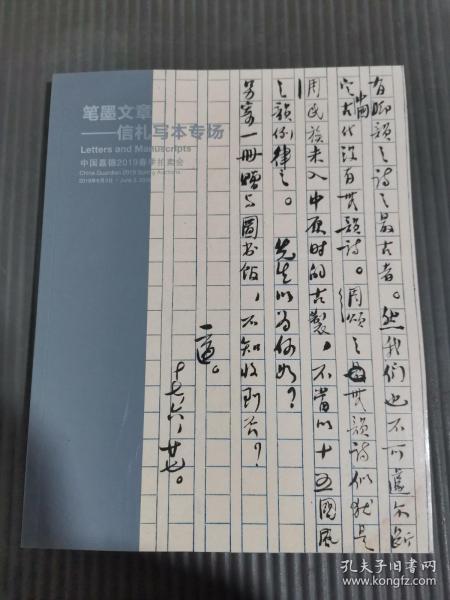 笔墨文章
——信札写本专场
Letters and Manuscripts
中国嘉德2019春季拍卖会
China Guardian 2019 Spring Auctions
2019年6月3日 · June 3, 2019
有脚韵之诗之最古者。然我们也不可遽尔断
定中国古代没有无韵诗。周颂之无韵诗似犹是
周民族未入中原时的古製，不当以十五國风
之韻例律之。 先生以为何如？
另寄一册赠与圖书馆，不知收到否？
適。
十七，六，廿七。
孔夫子旧书网
www.kongfz.com